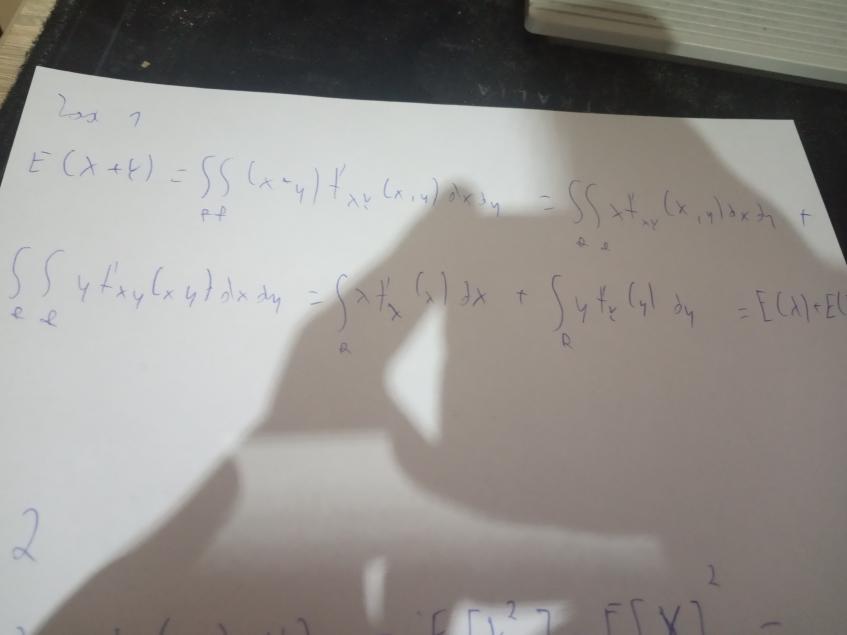 1
E(X+Y) = ∬ (x+y) f_{XY}(x,y) dx dy = ∬ x f_{XY}(x,y) dx dy +
∫_R ∫_R y f_{XY}(x y) dx dy = ∫_R x f_X (x) dx + ∫_R y f_Y (y) dy = E(X)+E(
2
E[X²] E[X]² =